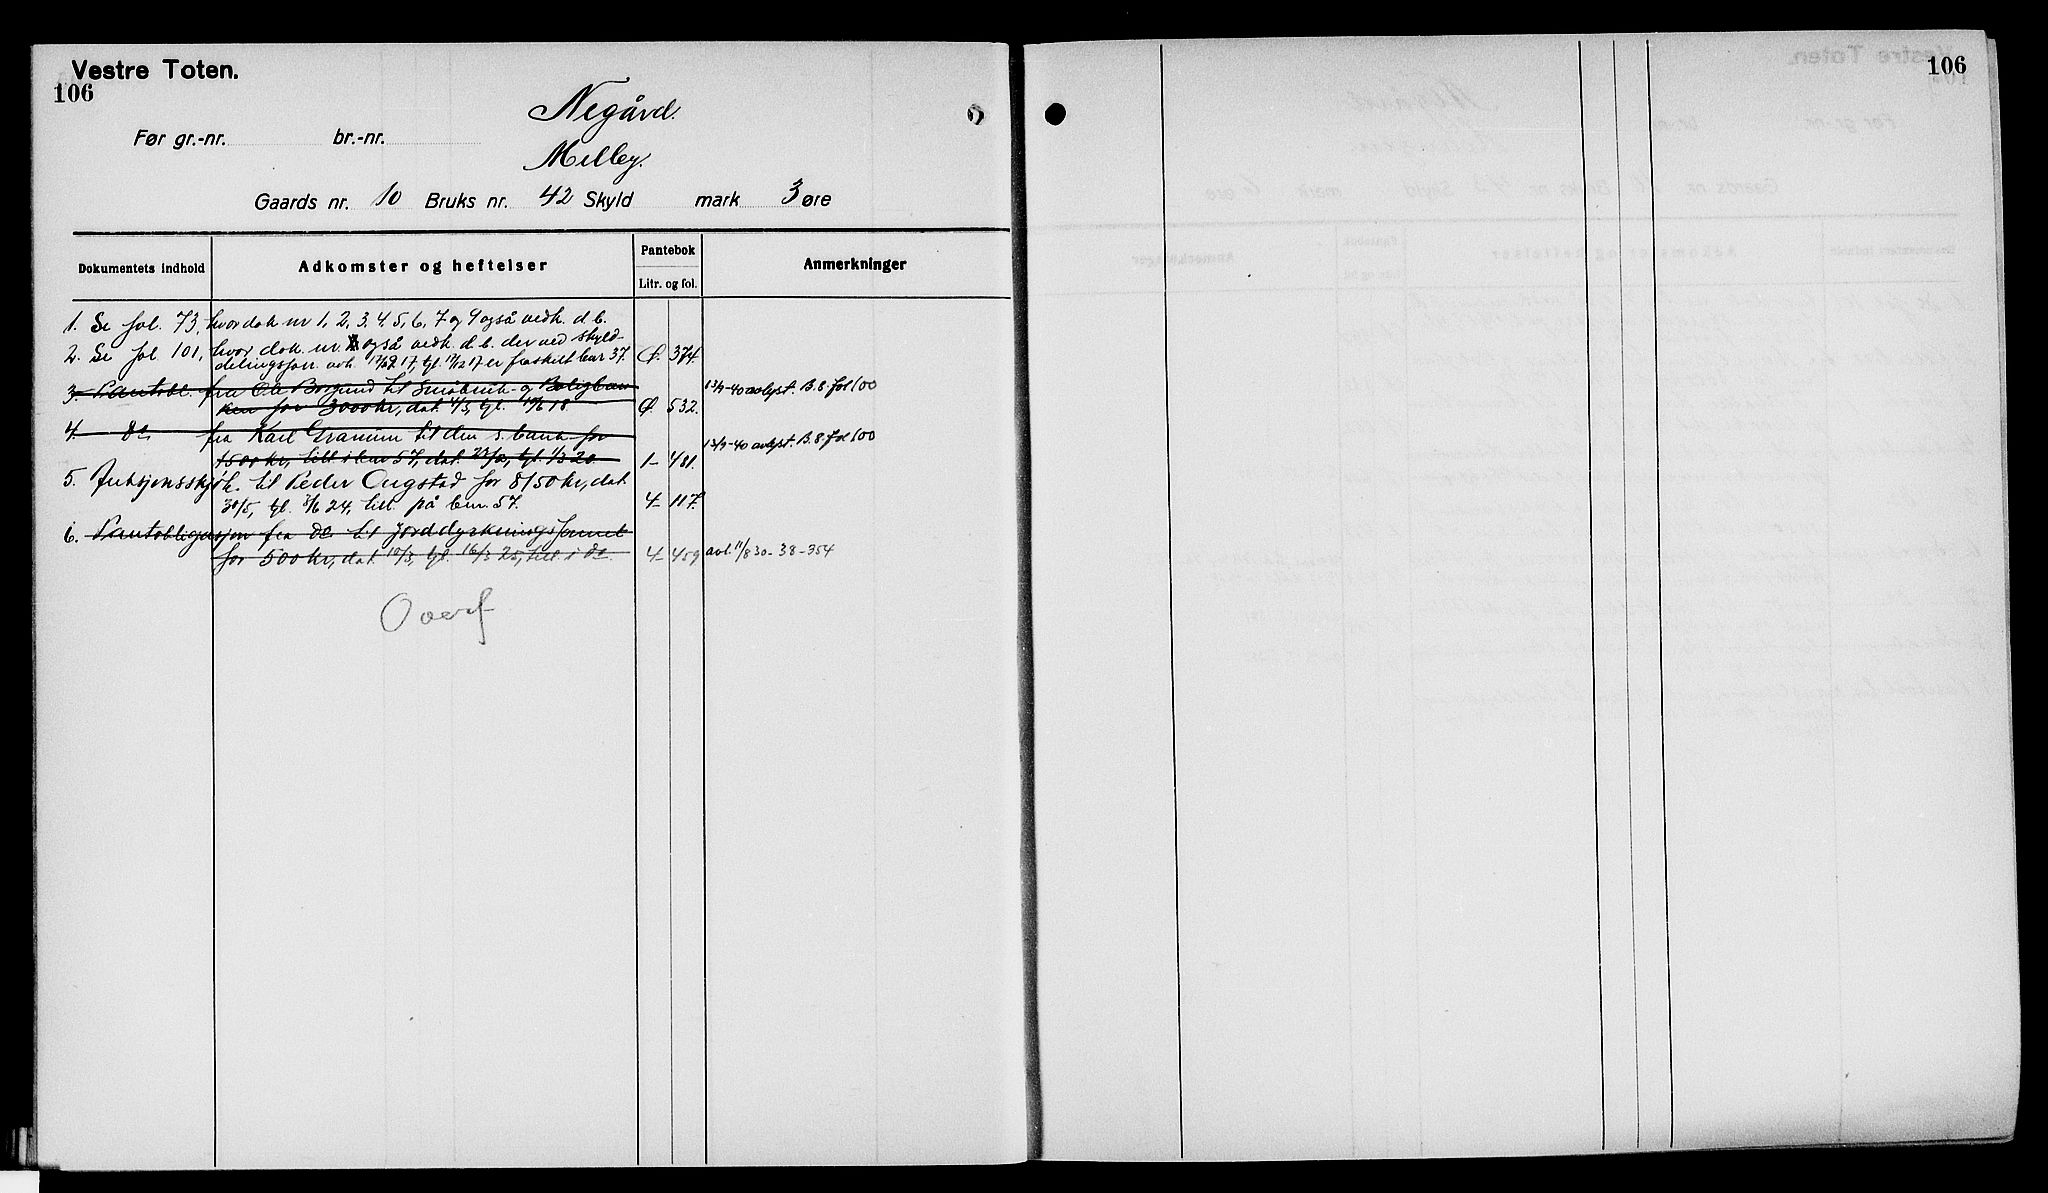 Vestre Toten.
106
Negård.
Før gr.-nr. br.-nr.
Melby.
Gaards nr. 10 Bruks nr. 42 Skyld mark 3 øre
Dokumentets indhold Adkomster og heftelser Pantebok Anmerkninger
Litr. og fol.
1. Se fol. 73, hvor dok nr 1, 2, 3, 4, 5, 6, 7 og 9 også vedk. d. b.
2. Se fol 101, hvor dok. nr. også vedk. d. b. der ved skyld-
delingsforr. avh. 17, tgl. 17/12 17 er fraskilt bnr 37. Ø. 374.
3. Pantobl. fra Ole Borgund til Småbruk- og Boligban
ken for 3000 kr, dat. 4/3, tgl. 18 Ø. 532. 13/9-40 avlyst. B. 8. fol 100
4. do fra Karl Granum til den s. bank for
1500 kr, till. i bnr 57, dat. tgl. 1/3 20 1- 481. 13/9-40 avlyst. B. 8. fol 100
5. Auksjonsskjøt. til Peder Ougstad for 8150 kr, dat
30/5, tgl. 3/6 24, till. på bnr. 57. 4- 117.
6. Pantobligasjon fra do til Jorddyrkningsfonnet
for 500 kr, dat. 10/3, tgl. 16/3 25, till. i do. 4- 459 avl. 11/8 30-38-354
Overf
106